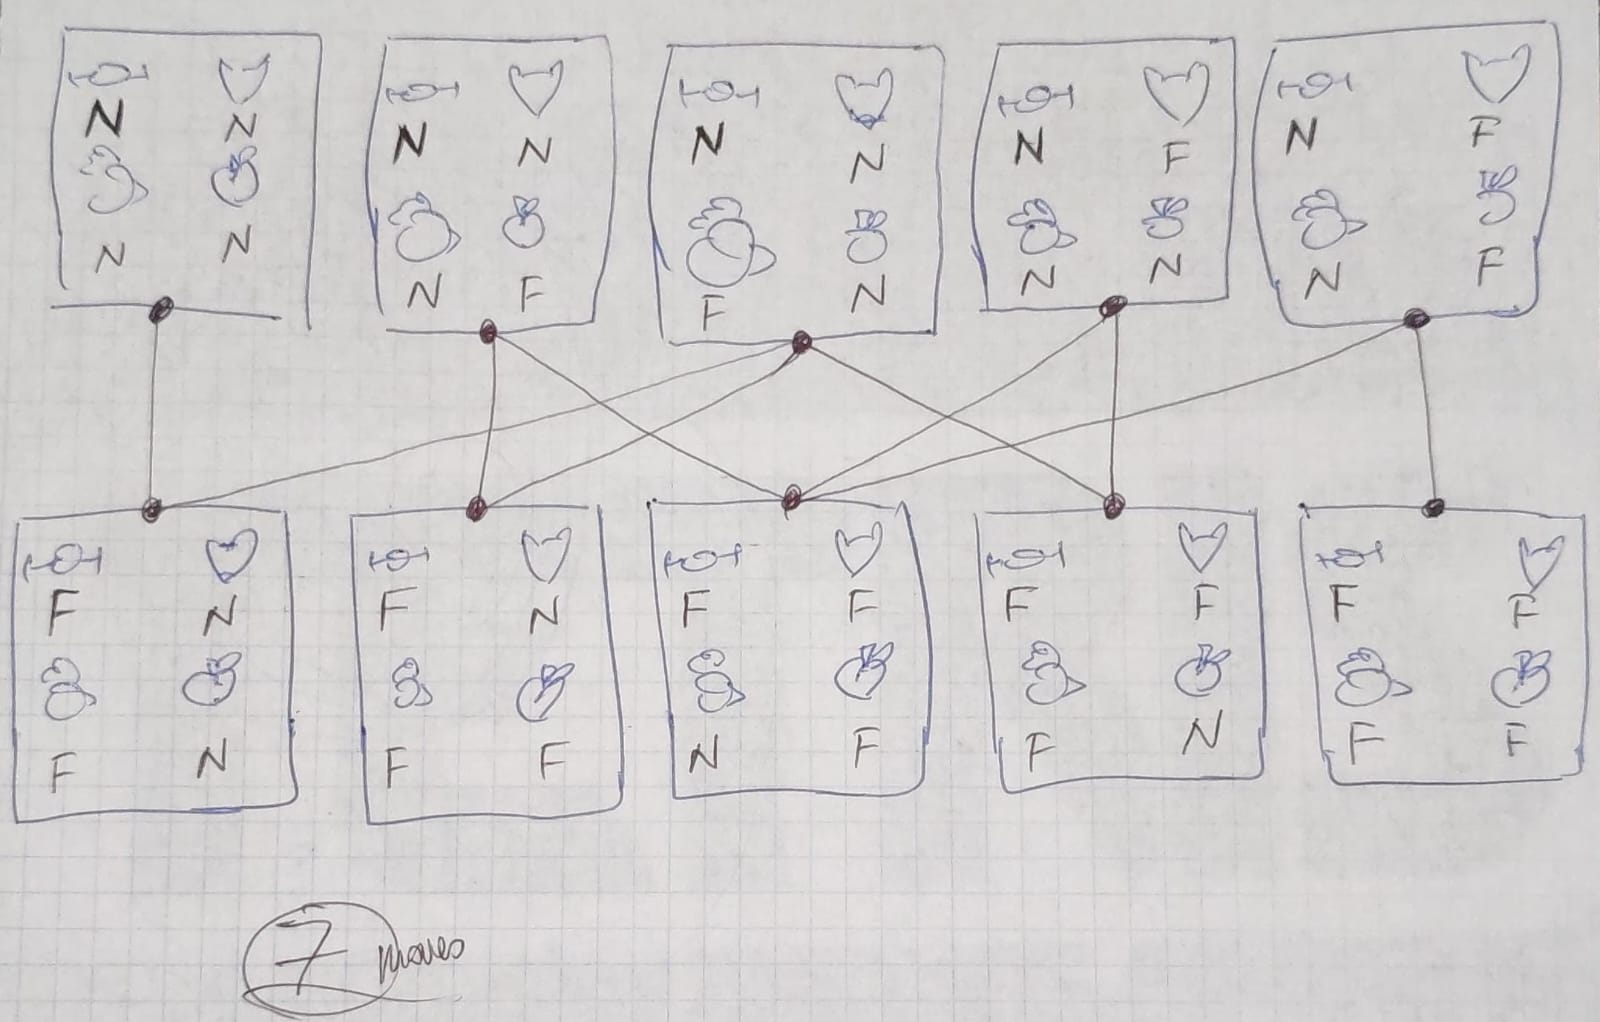 N N
N N
N N
N F
N N
F N
N F
N N
N F
N F
F N
F N
F N
F F
F F
N F
F F
F N
F F
F F
7 moves